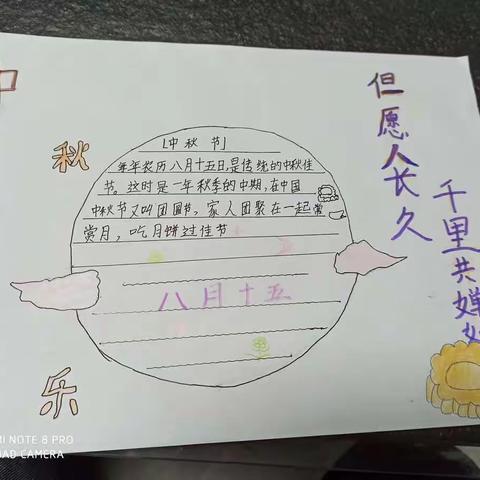 中
秋
乐
[中秋节]
每年农历八月十五日,是传统的中秋佳
节。这时是一年秋季的中期,在中国
中秋节又叫团圆节,家人团聚在一起常
赏月,吃月饼过佳节
八月十五
但愿人长久
千里共婵
MI NOTE 8 PRO
UAD CAMERA